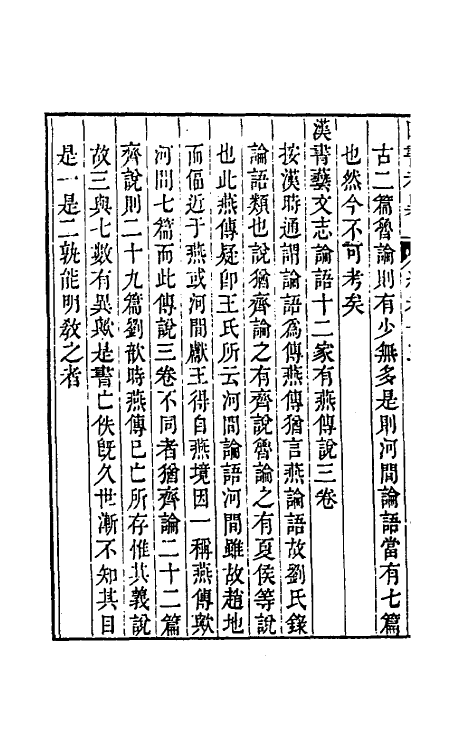 古二篇魯論則有少無多是則河間論語當有七篇
也然今不可考矣
漢書藝文志論語十二家有燕傳說三卷
按漢時通謂論語為傳燕傳猶言燕論語故劉氏錄
論語類也說猶齊論之有齊說魯論之有夏侯等說
也此燕傳疑卽王氏所云河間論語河間雖故趙地
而偪近于燕或河間獻王得自燕境因一稱燕傳歟
河間七篇而此傳說三卷不同者猶齊論二十二篇
齊說則二十九篇劉歆時燕傳已亡所存惟其義說
故三與七數有異歟是書亡佚旣久世漸不知其目
是一是二孰能明敎之者